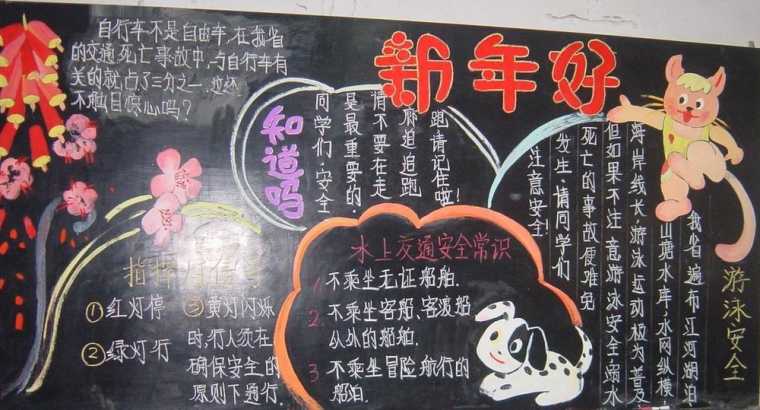 自行车不是自由车,在我省
的交通死亡事故中,与自行车有
关的就占了三分之一,这还
不触目惊心吗?
新年好
知道吗
同学们·安全
是最重要的·
情不要在走
廊追追跑
跑请记住啦!
指挥
①红灯停
②绿灯行
③黄灯闪烁
时,行人须在
确保安全的
原则下通行.
水上交通安全常识
1 不乘坐无证船舶.
2. 不乘坐客船、客渡船
以外的船舶.
3 不乘坐冒险航行的
船舶.
游泳安全
我省遍布江河湖泊
山塘水库,水网纵横
海岸线长·游泳运动极为普及
但如果不注意游泳安全溺水
死亡的事故便难免
发生·请同学们
注意安全!